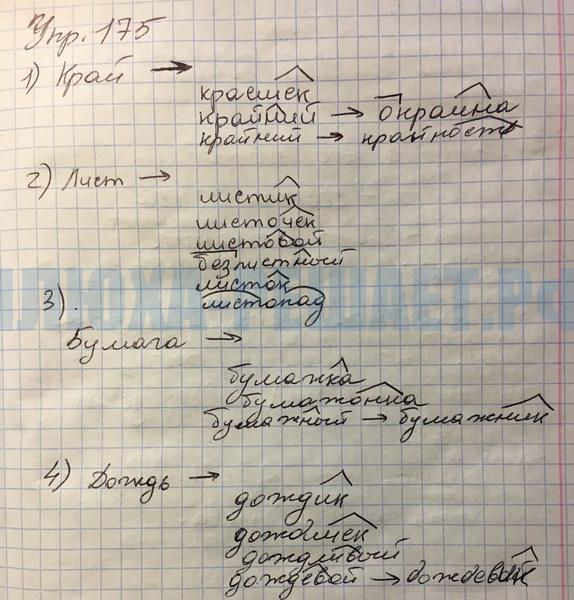 Упр. 175
1) Край →
краешек
крайний → окраина
крайний → крайность
2) Лист →
листик
листочек
листовой
безлистный
листок
3).
листопад
Бумага →
бумажка
бумажонка
бумажный → бумажник
4) Дождь →
дождик
дождливый
дождевой →